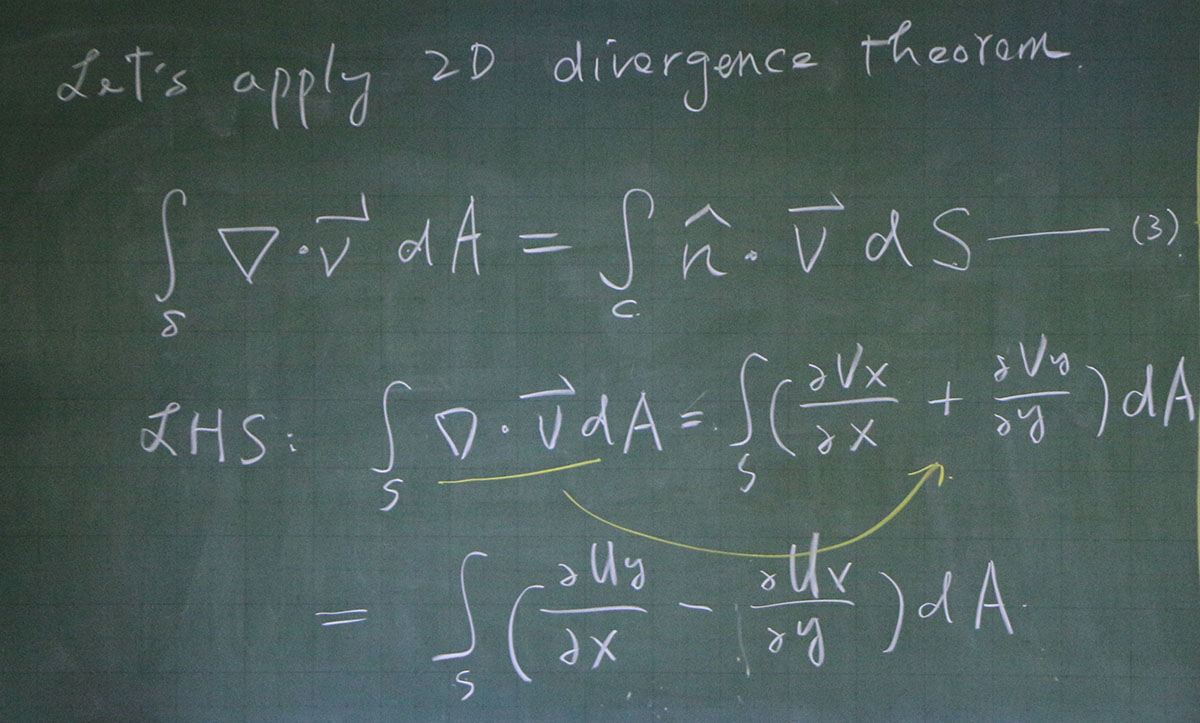 Let's apply 2D divergence theorem.
∫_S ∇·v⃗ dA = ∫_C n̂·v⃗ dS —— (3)
LHS: ∫_S ∇·v⃗ dA = ∫_S (∂Vx/∂x + ∂Vy/∂y) dA
= ∫_S (∂Uy/∂x − ∂Ux/∂y) dA.